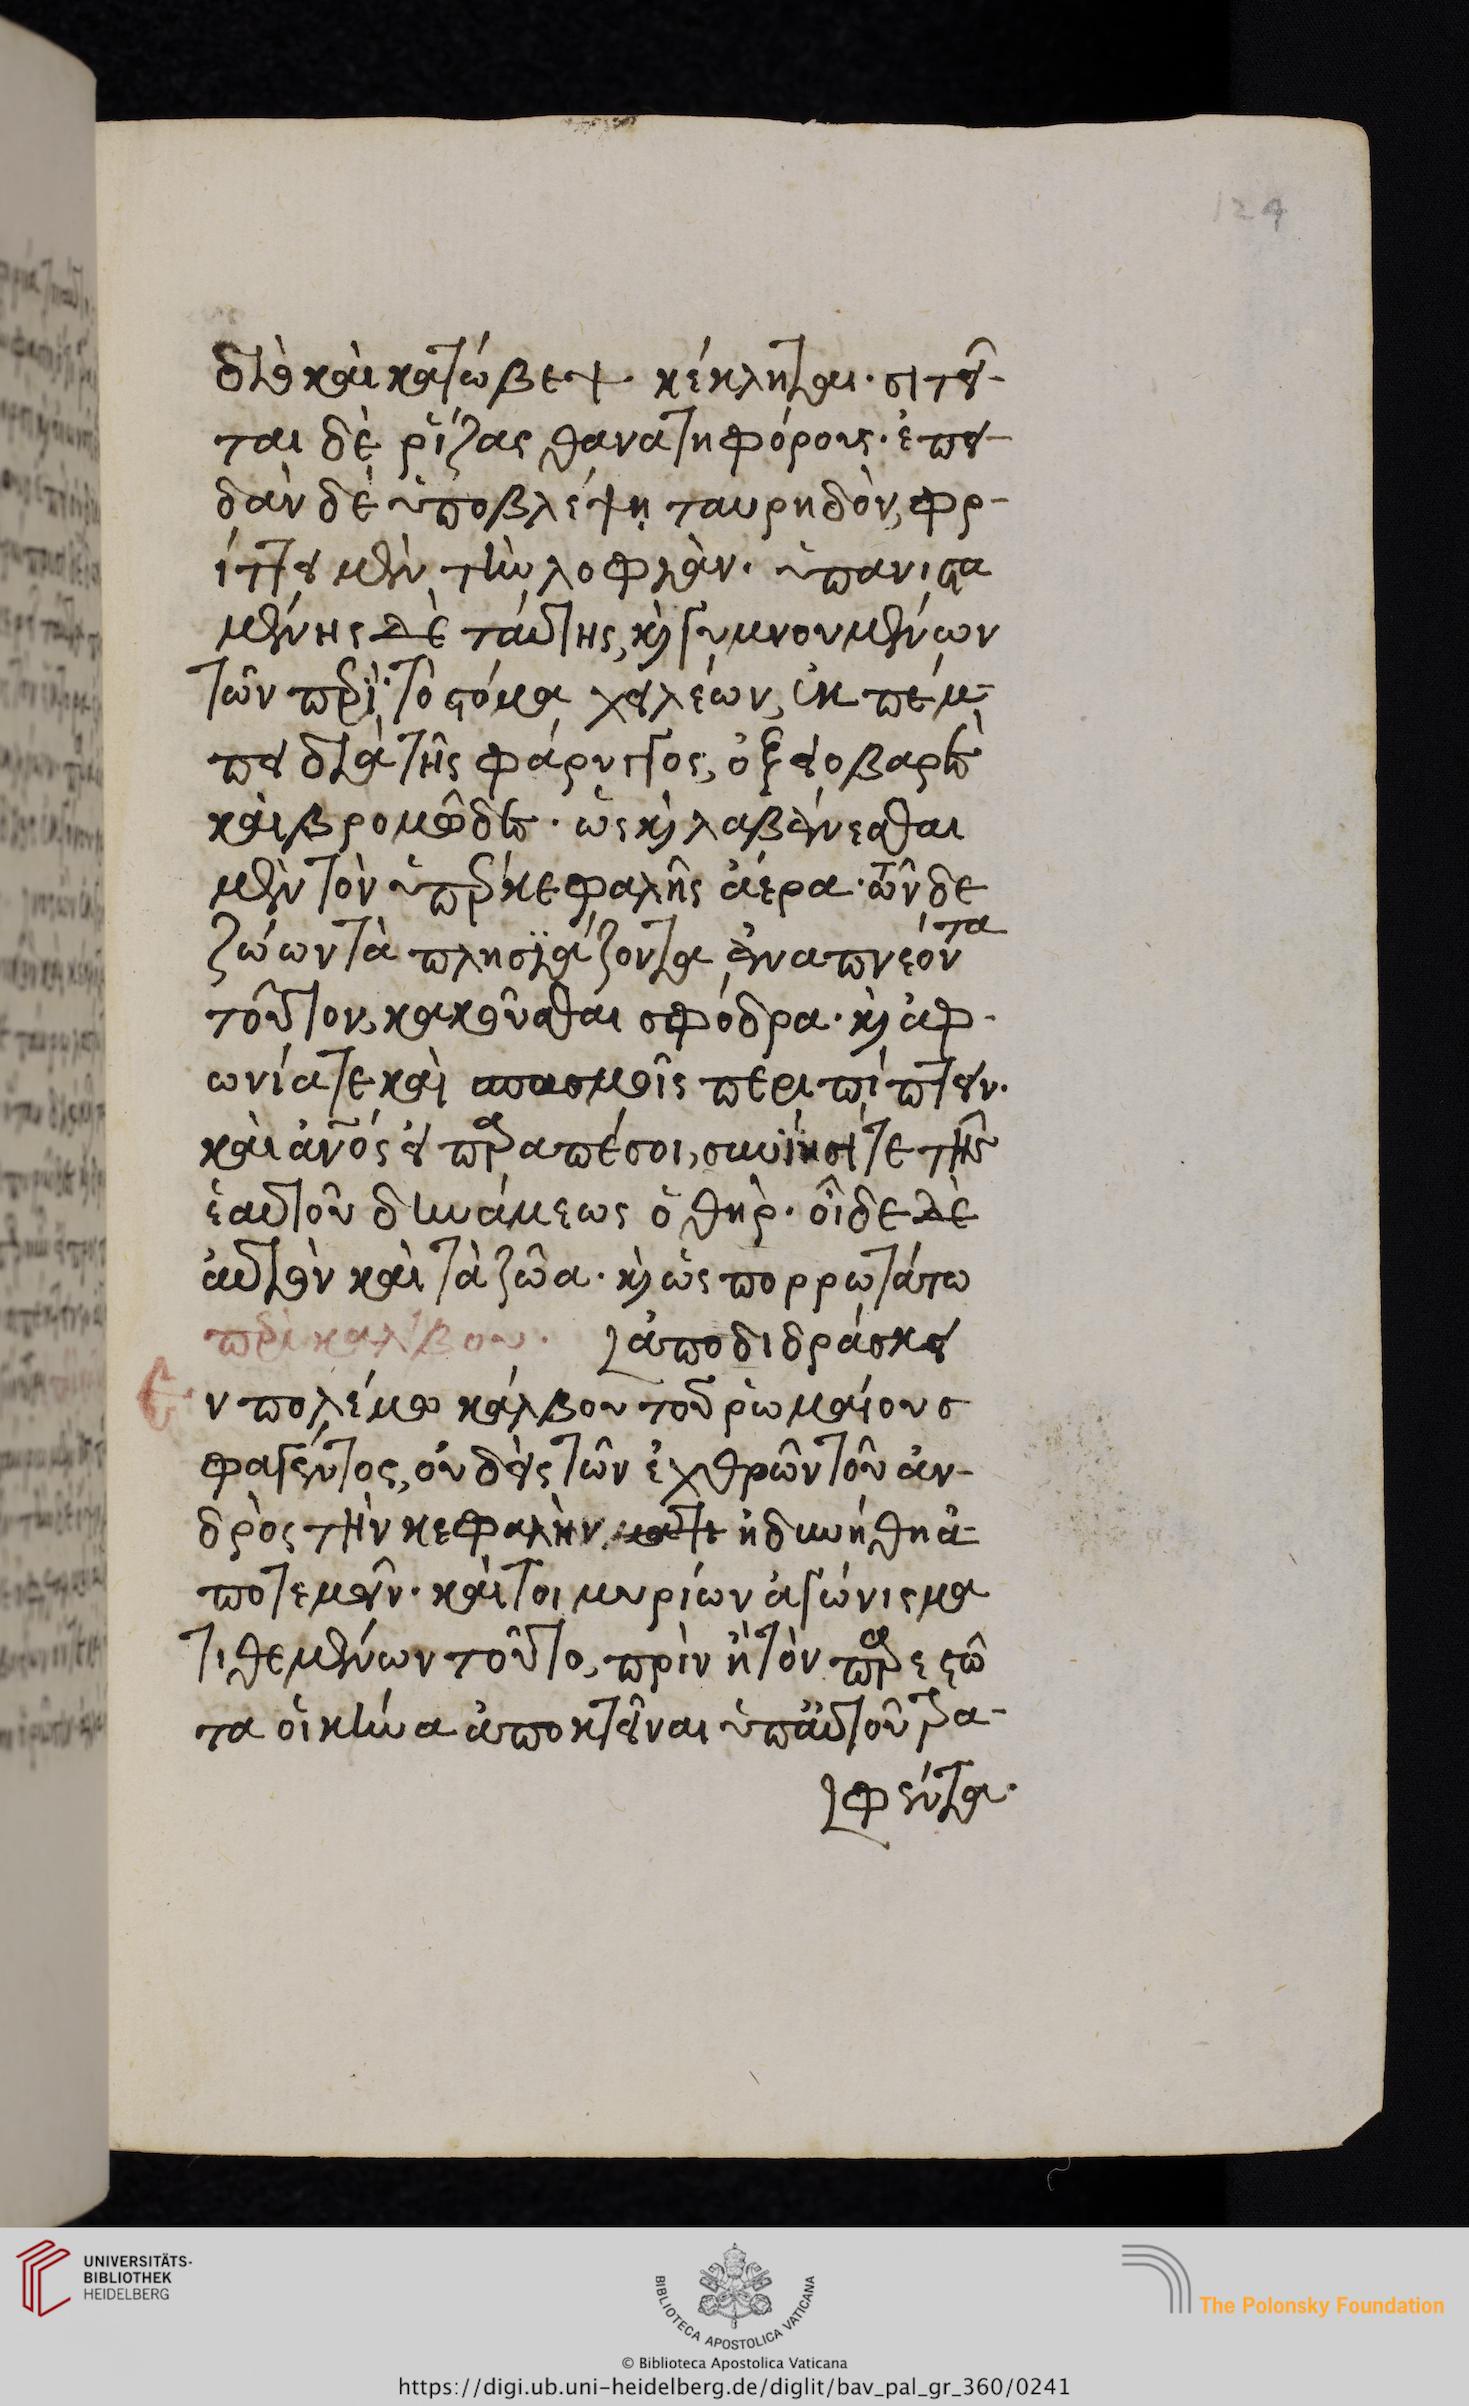 124
διὸ καὶ κατώβλεψ. κέκληται. σιτεῖ-
ται δὲ ῥίζας θανατηφόρους. ἐπει-
δὰν δὲ ὑποβλέψη ταυρηδὸν, φρ-
ίττει μὲν τὴν λοφιὰν. ὑπανιστα
μένης δὲ ταύτης, κὴ γυμνουμένων
τῶν περὶ τὸ στόμα χειλέων, ἐκπέμ-
πει διὰ τῆς φάρυγγος, ὀξειοβαρὲς
καὶ βρομῶδες. ὡς κὴ λαβαίνεσθαι
μὲν τὸν ὑπὲρ κεφαλῆς ἀέρα. τῶν δε
ζώων τὰ πλησιάζοντα ἀναπνέοντα
τοῦτον, κακοῦσθαι σφόδρα. κὴ ἀφ-
ωνία τε καὶ σπασμοῖς περιπίπτειν.
καὶ ἀνος εἰ παραπέσοι, συνίησί τε τῆς
ἑαυτοῦ δυνάμεως ὁ θήρ. οἶδε δὲ
αὐτὸν καὶ τὰ ζῶα. κὴ ὡς πορρωτάτω
ἀποδιδράσκει
περὶ κάλβου.
Ἐν πολέμω κάλβου τοῦ ῥωμαίου σ
φαγέντος, οὐδεὶς τῶν ἐχθρῶν τοῦ ἀν-
δρὸς τὴν κεφαλὴν, ἠδυνήθη ἀ-
ποτεμεῖν. καίτοι μυρίων ἀγώνισμα
τιθεμένων τοῦτο, πρὶν ἢ τὸν παρεστῶ
τα οἱ κύνα ἀποκτεῖναι ὑπ' αὐτοῦ τρα-
φέντα.
UNIVERSITÄTS-
BIBLIOTHEK
HEIDELBERG
BIBLIOTECA APOSTOLICA VATICANA
The Polonsky Foundation
© Biblioteca Apostolica Vaticana
https://digi.ub.uni-heidelberg.de/diglit/bav_pal_gr_360/0241